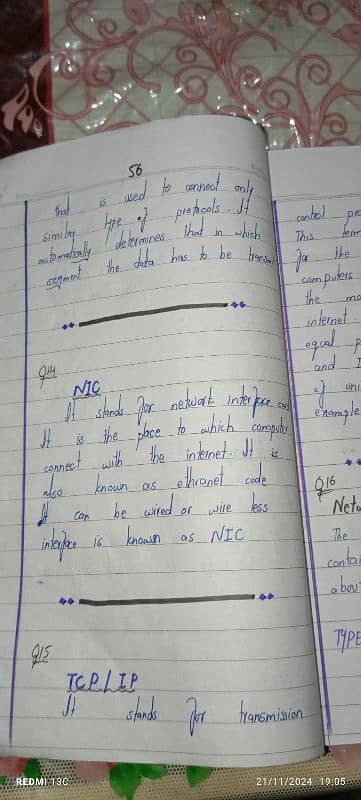 56
that is used to connect only
similar type of protocols. It
automatically determines that in which
segment the data has to be
Q14
NIC
It stands for network interface
It is the place to which computer
connect with the internet. It is
also known as ethranet code
It can be wired or wire less
interface is known as NIC
Q15
TCP/IP
It stands for transmission
control
This
for the
computers
the
internet
equal
and
of
example
Q16
The
TYPE
REDMI 13C
21/11/2024 19:05